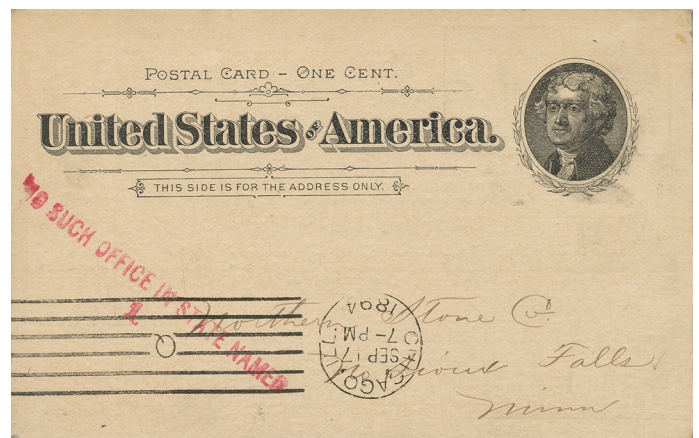 POSTAL CARD – ONE CENT.
United States OF America.
THIS SIDE IS FOR THE ADDRESS ONLY.
NO SUCH OFFICE IN STATE NAMED
CHICAGO, ILL.
SEP 17
7-PM
1894
Northern Stone Co.
Sioux Falls
Minn